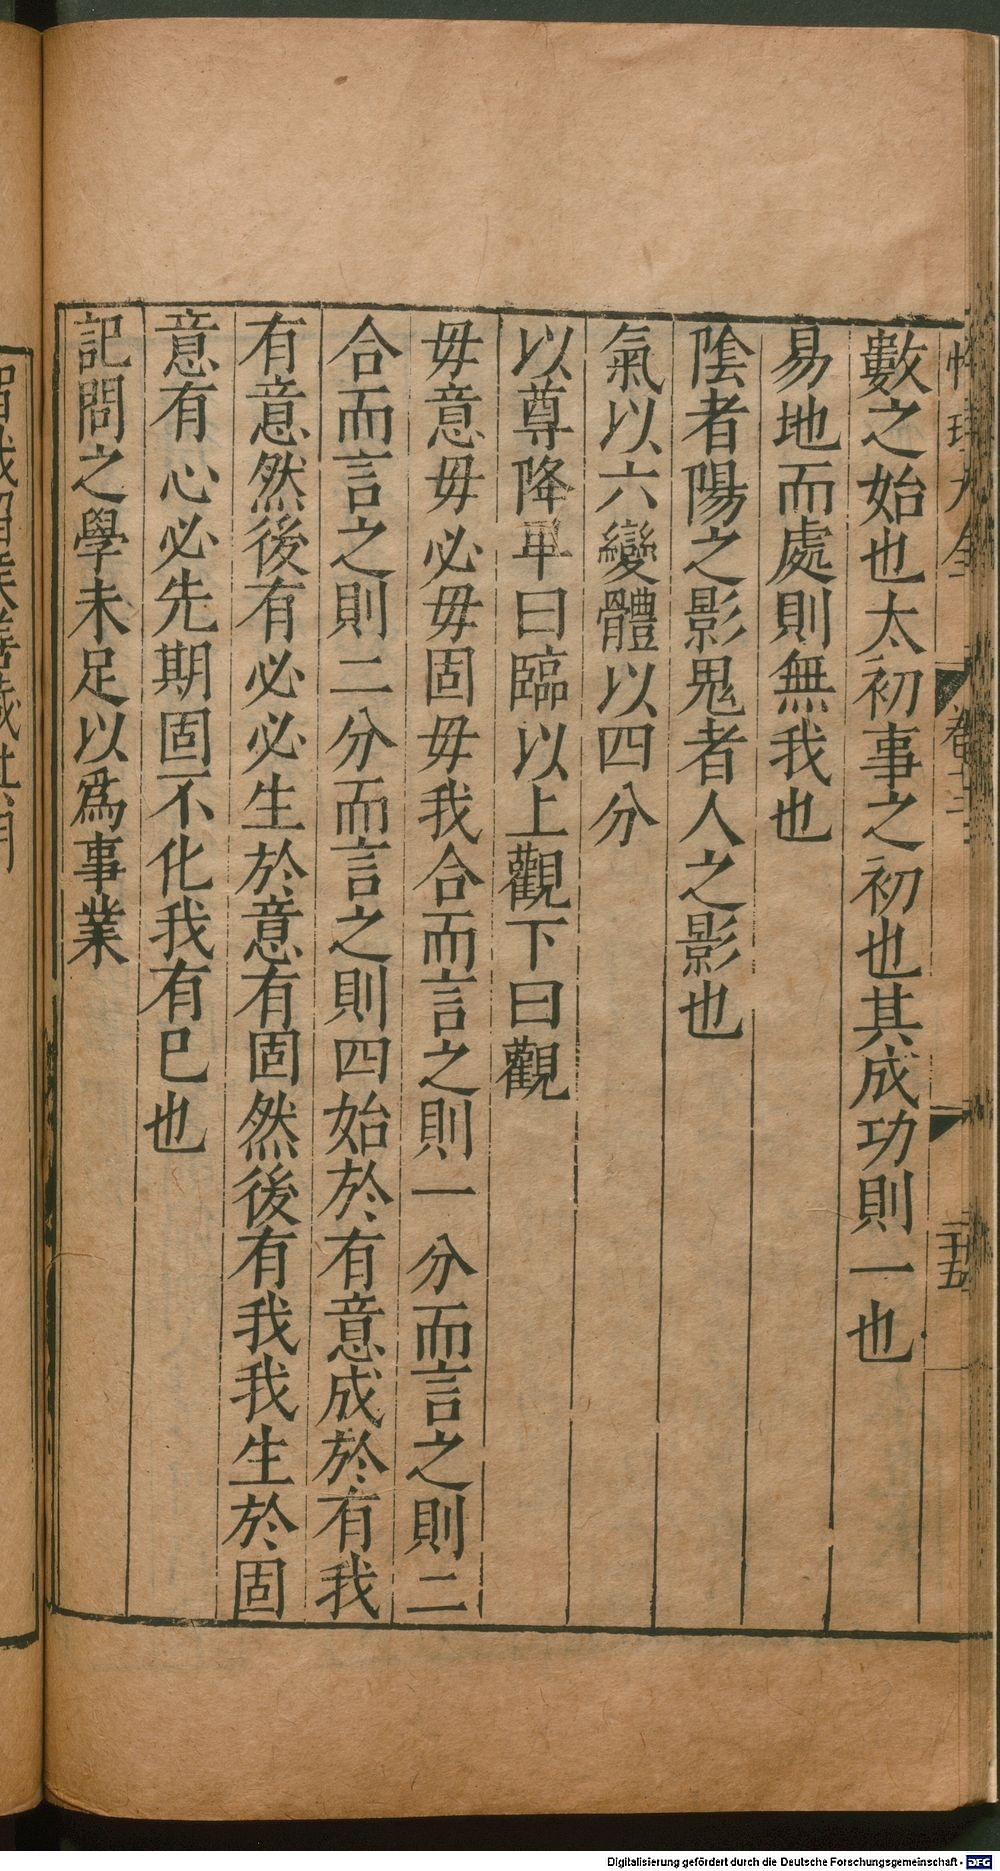 性理大全 卷十三 二十五
數之始也太初事之初也其成功則一也
易地而處則無我也
陰者陽之影鬼者人之影也
氣以六變體以四分
以尊降卑曰臨以上觀下曰觀
毋意毋必毋固毋我合而言之則一分而言之則二
合而言之則二分而言之則四始於有意成於有我
有意然後有必必生於意有固然後有我我生於固
意有心必先期固不化我有已也
記問之學未足以爲事業
Digitalisierung gefördert durch die Deutsche Forschungsgemeinschaft - DFG